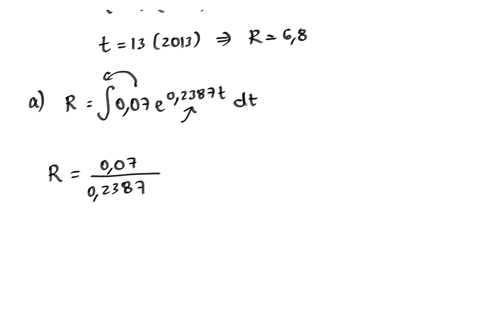 t = 13 (2013) ⇒ R = 6,8
a) R = ∫ 0,07 e^{0,2387t} dt
R = 0,07 / 0,2387